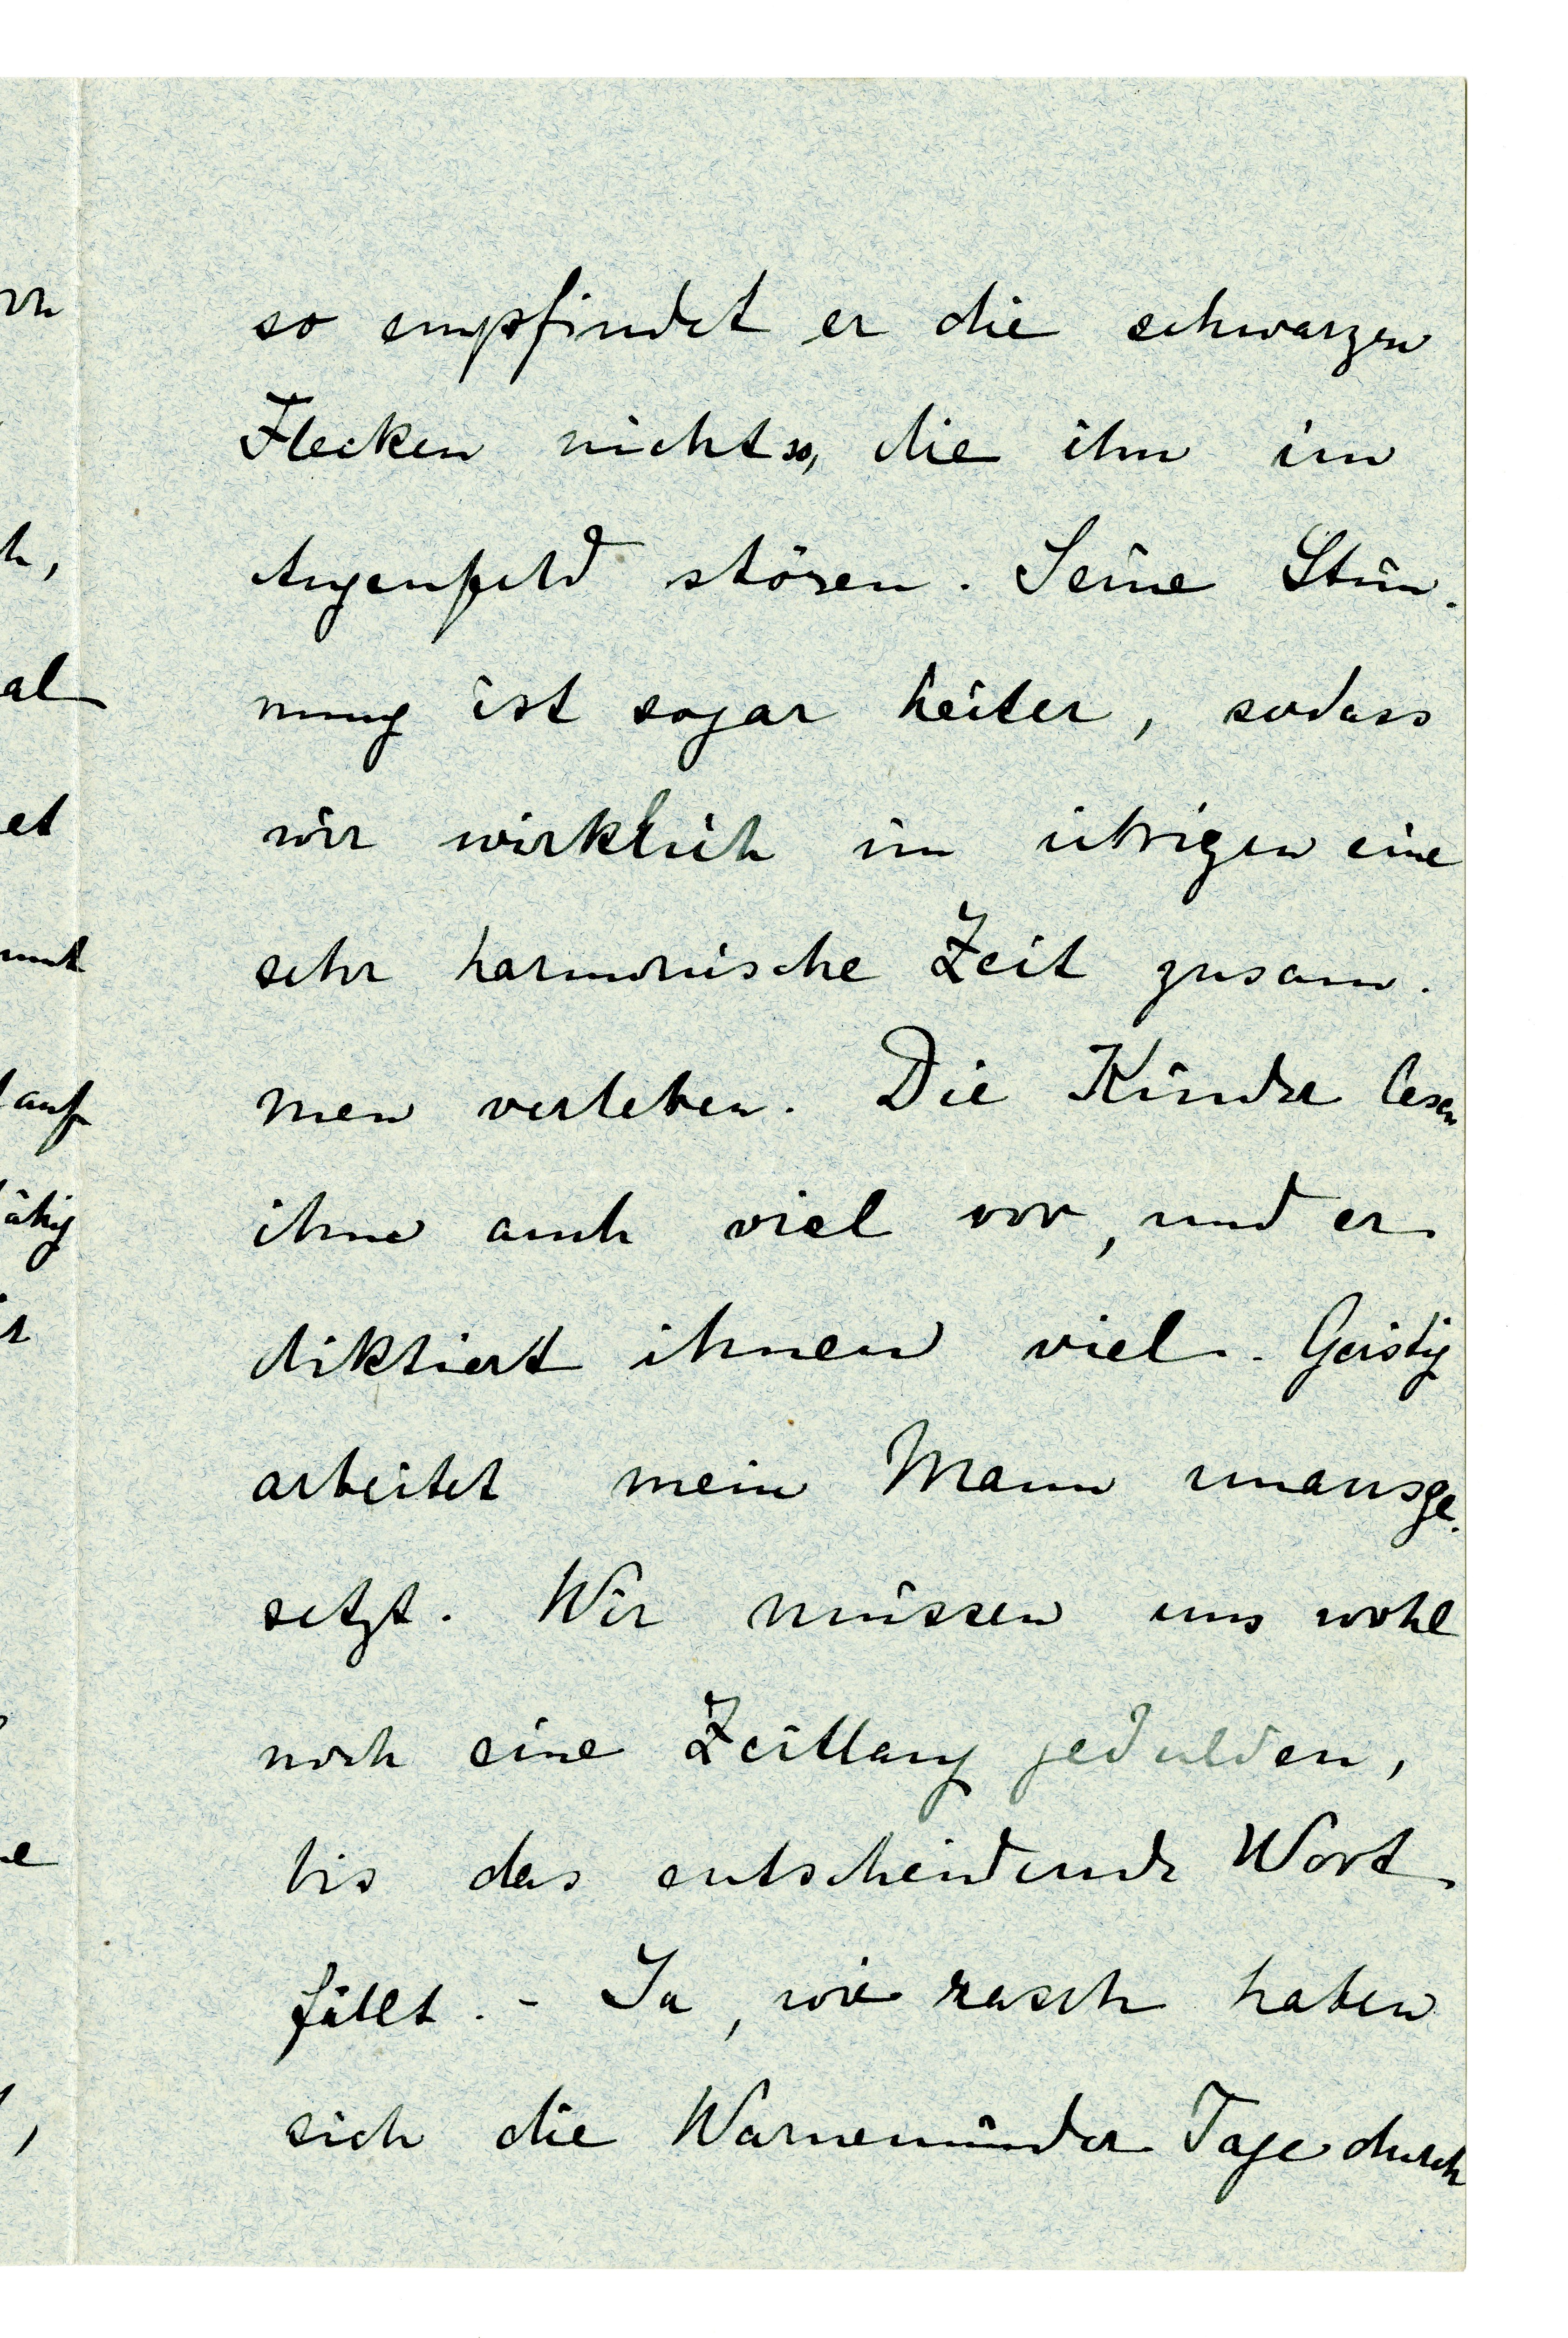 so empfindet er die schwarzen
Flecken nicht so, die ihn im
Augenfeld stören. Seine Stim-
mung ist sogar heiter, sodass
wir wirklich im übrigen eine
sehr harmonische Zeit zusam-
men verleben. Die Kinder lesen
ihm auch viel vor, und er
diktiert ihnen viel. Geistig
arbeitet mein Mann unausge-
setzt. Wir müssen uns wohl
noch eine Zeitlang gedulden,
bis das entscheidende Wort
fällt. - Ja, wie rasch haben
sich die Warnemünder Tage durch